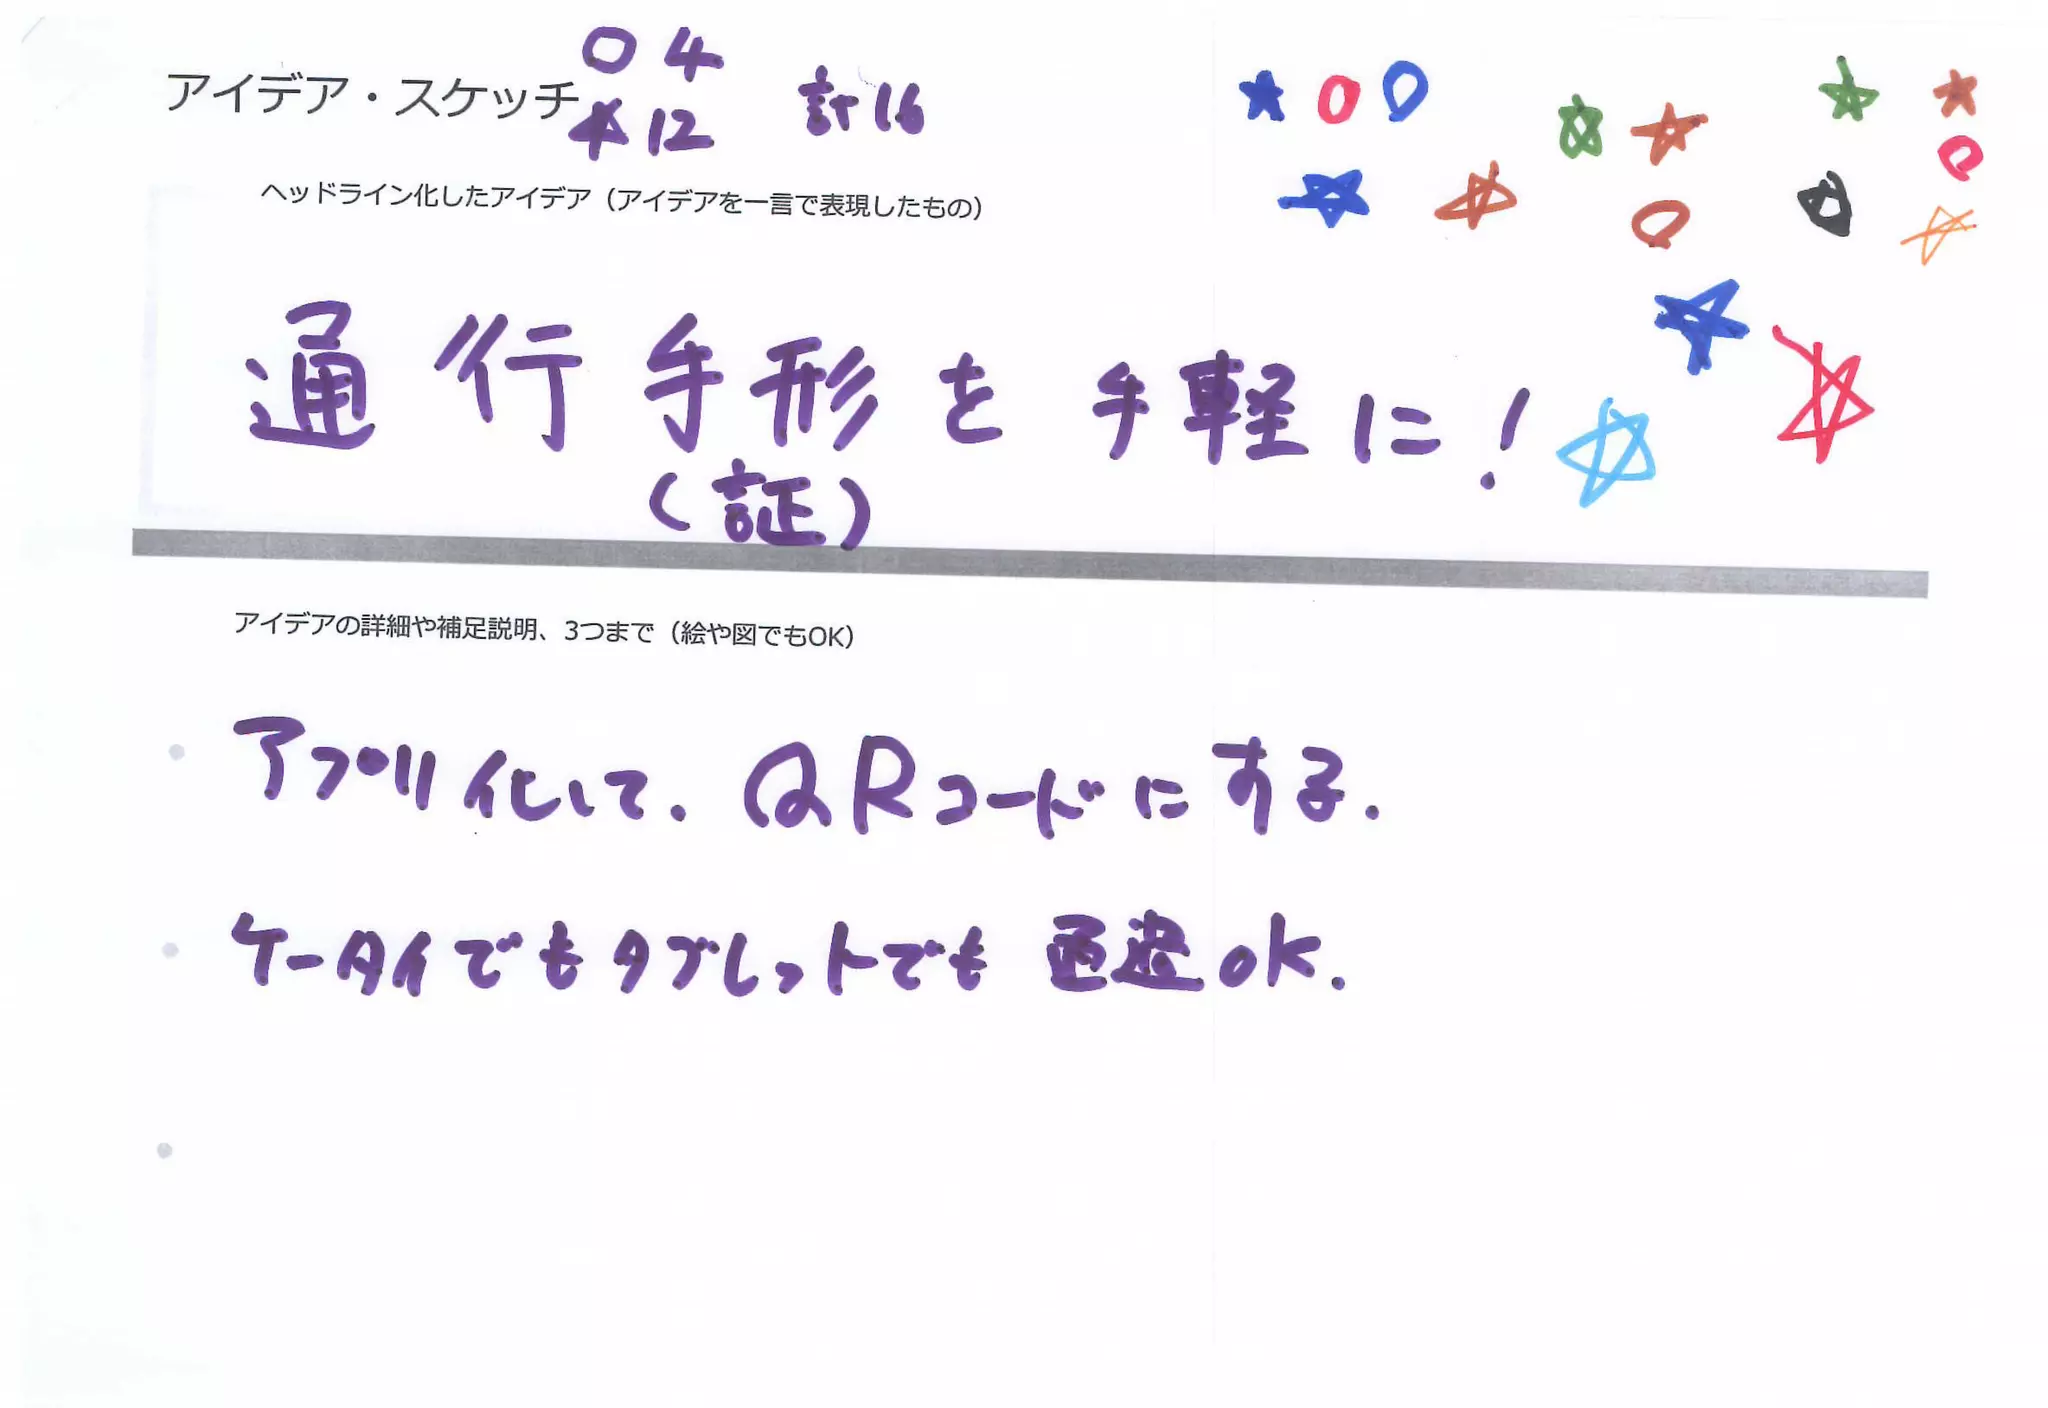 アイデア・スケッチ
○ 4
☆ 12
計 16
ヘッドライン化したアイデア（アイデアを一言で表現したもの）
通行手形を手軽に！
（証）
アイデアの詳細や補足説明、3つまで（絵や図でもOK）
アプリ化して、QRコードにする.
ケータイでもタブレットでもOK.